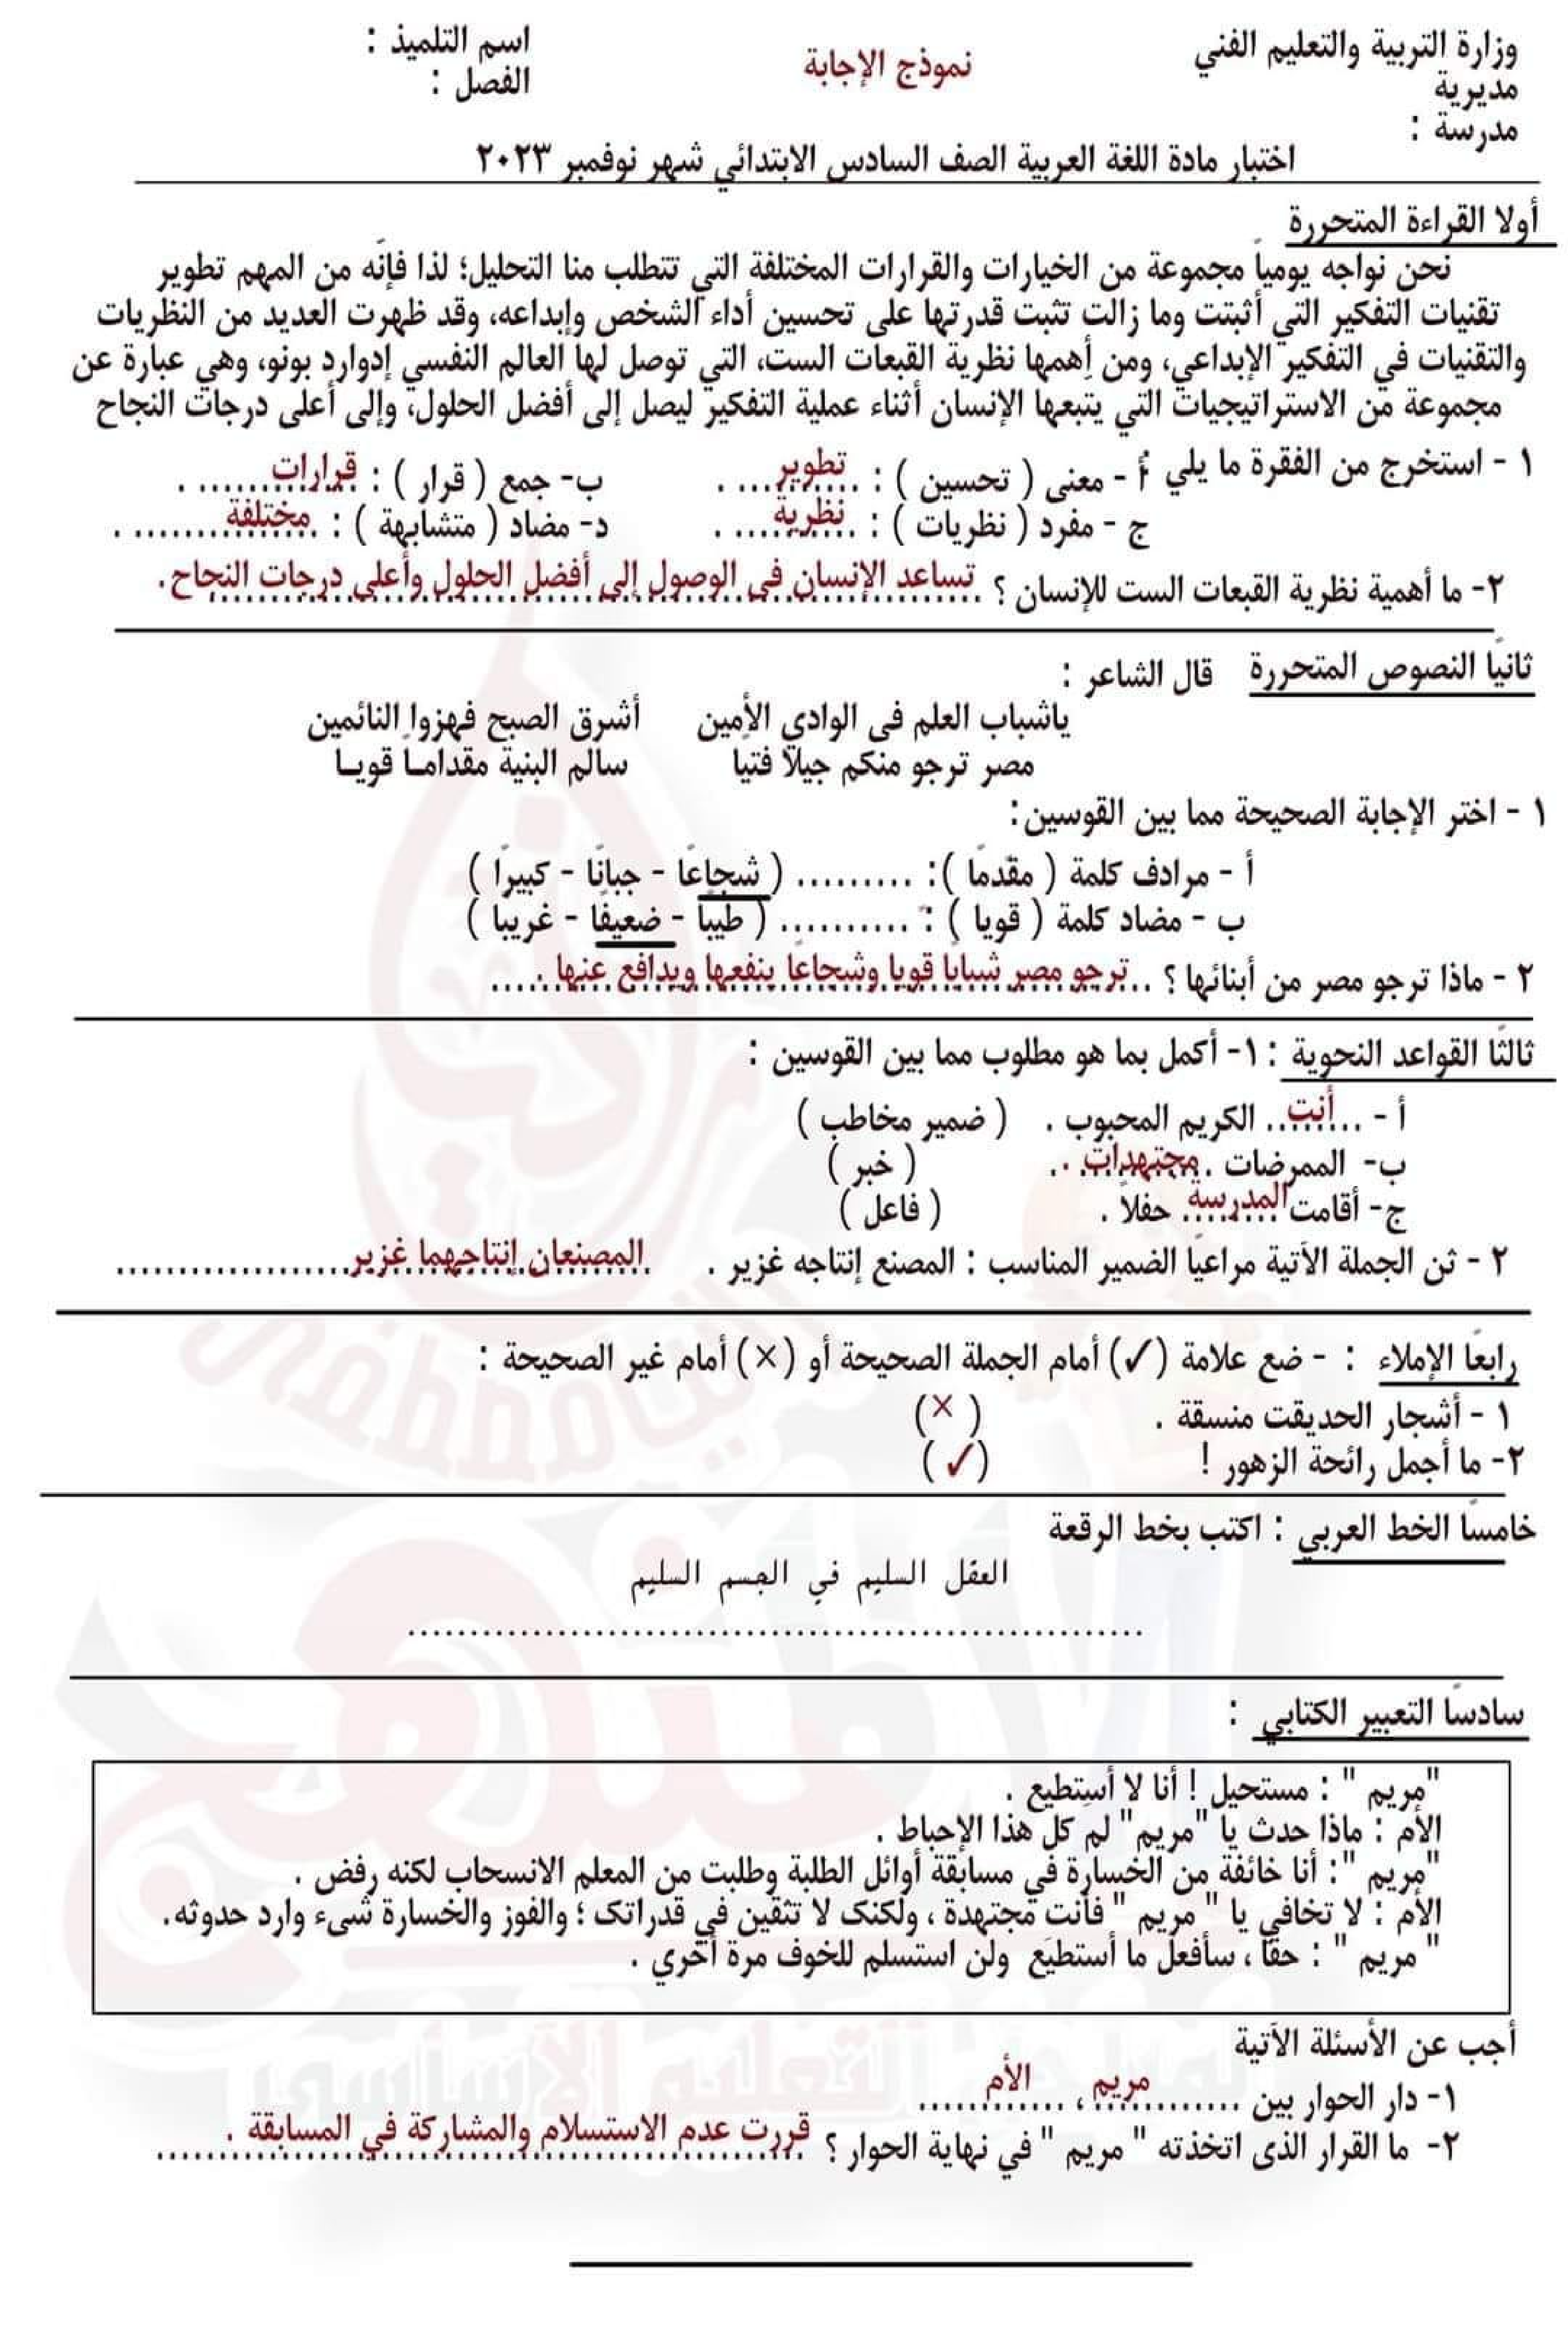 وزارة التربية والتعليم الفني
مديرية
مدرسة :
نموذج الإجابة
اسم التلميذ :
الفصل :
اختبار مادة اللغة العربية الصف السادس الابتدائي شهر نوفمبر ٢٠٢٣
أولا القراءة المتحررة
نحن نواجه يومياً مجموعة من الخيارات والقرارات المختلفة التي تتطلب منا التحليل؛ لذا فإنّه من المهم تطوير
تقنيات التفكير التي أثبتت وما زالت تثبت قدرتها على تحسين أداء الشخص وإبداعه، وقد ظهرت العديد من النظريات
والتقنيات في التفكير الإبداعي، ومن أهمها نظرية القبعات الست، التي توصل لها العالم النفسي إدوارد بونو، وهي عبارة عن
مجموعة من الاستراتيجيات التي يتبعها الإنسان أثناء عملية التفكير ليصل إلى أفضل الحلول، وإلى أعلى درجات النجاح
١ - استخرج من الفقرة ما يلي : أ - معنى ( تحسين ) : تطوير . ب- جمع ( قرار ) : قرارات .
ج - مفرد ( نظريات ) : نظرية . د- مضاد ( متشابهة ) : مختلفة .
٢- ما أهمية نظرية القبعات الست للإنسان ؟ تساعد الإنسان في الوصول إلى أفضل الحلول وأعلى درجات النجاح.
ثانيًا النصوص المتحررة قال الشاعر :
ياشباب العلم فى الوادي الأمين أشرق الصبح فهزوا النائمين
مصر ترجو منكم جيلًا فتيًا سالم البنية مقدامـاً قويـا
١ - اختر الإجابة الصحيحة مما بين القوسين:
أ - مرادف كلمة ( مقدمًا ): ......... ( شجاعًا - جبانًا - كبيرًا )
ب - مضاد كلمة ( قويا ) : .......... ( طيبًا - ضعيفًا - غريبا )
٢ - ماذا ترجو مصر من أبنائها ؟ ترجو مصر شبابًا قويا وشجاعًا ينفعها ويدافع عنها .
ثالثًا القواعد النحوية : ١- أكمل بما هو مطلوب مما بين القوسين :
أ - أنت الكريم المحبوب . ( ضمير مخاطب )
ب- الممرضات مجتهدات . ( خبر )
ج- أقامت المدرسة حفلاً . ( فاعل )
٢ - ثن الجملة الآتية مراعيًا الضمير المناسب : المصنع إنتاجه غزير . المصنعان إنتاجهما غزير
رابعًا الإملاء : - ضع علامة (✓) أمام الجملة الصحيحة أو (×) أمام غير الصحيحة :
١ - أشجار الحديقت منسقة . (×)
٢- ما أجمل رائحة الزهور ! (✓)
خامسًا الخط العربي : اكتب بخط الرقعة
العقل السليم في الجسم السليم
سادسًا التعبير الكتابي :
"مريم " : مستحيل ! أنا لا أستطيع .
الأم : ماذا حدث يا "مريم" لم كل هذا الإحباط .
"مريم ": أنا خائفة من الخسارة في مسابقة أوائل الطلبة وطلبت من المعلم الانسحاب لكنه رفض .
الأم : لا تخافي يا " مريم " فأنت مجتهدة ، ولكنك لا تثقين في قدراتك ؛ والفوز والخسارة شىء وارد حدوثه.
" مريم " : حقًا ، سأفعل ما أستطيع ولن استسلم للخوف مرة أخري .
أجب عن الأسئلة الآتية
١- دار الحوار بين مريم ، الأم
٢- ما القرار الذى اتخذته " مريم " في نهاية الحوار ؟ قررت عدم الاستسلام والمشاركة في المسابقة .